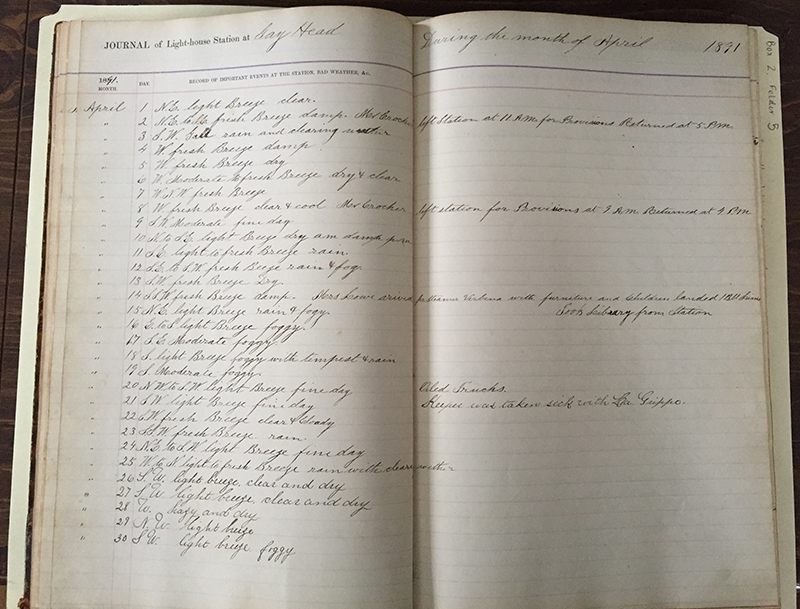 JOURNAL of Light-house Station at Gay Head During the month of April 1891
1891.
MONTH. DAY. RECORD OF IMPORTANT EVENTS AT THE STATION, BAD WEATHER, &c.
April 1 N.E. light Breeze clear.
" 2 N.E. to E. fresh Breeze damp. Mr Crocker left Station at 11 A.M. for Provisions Returned at 5 P.M.
" 3 S.W. Gale rain and clearing weather
" 4 W fresh Breeze damp.
" 5 W fresh Breeze dry
" 6 W Moderate to fresh Breeze dry & clear
" 7 W.N.W fresh Breeze
" 8 W. fresh Breeze clear & cool Mr Crocker left station for Provisions at 9 A.M. Returned at 9 P.M.
" 9 S.W Moderate fine day
" 10 N. to S.E. light Breeze dry am damp p.m
" 11 S.E. light to fresh Breeze rain.
" 12 S.E. to S.W fresh Beeze rain & fog.
" 13 S.W fresh Breeze Dry.
" 14 S.W fresh Breeze damp. Mrs Lowe arived Steamer Verbena with furniture and Children landed 1 Bbl
" 15 N.E. light Breeze rain & fogy. Library from Station
" 16 E. to S light Breeze foggy.
" 17 S.E Moderate foggy
" 18 S. light Breeze foggy with tempest & rain
" 19 S. Moderate foggy.
" 20 N.W. to S.W light Breeze fine day Oiled Trucks.
" 21 S.W light Breeze fine day Keeper was taken sick with La Grippe.
" 22 S.W fresh Breeze clear & cloady
" 23 S.W fresh Breeze rain.
" 24 N.E. to S.W light Breeze fine day
" 25 W. to N light to fresh Breeze rain with clear wether
" 26 S. W. light breeze, clear and dry
" 27 S W. light breeze, clear and dry
" 28 W. hazy and dry
" 29 N. W. light breeze
" 30 S W. light breeze foggy
Box 2. Folder 3